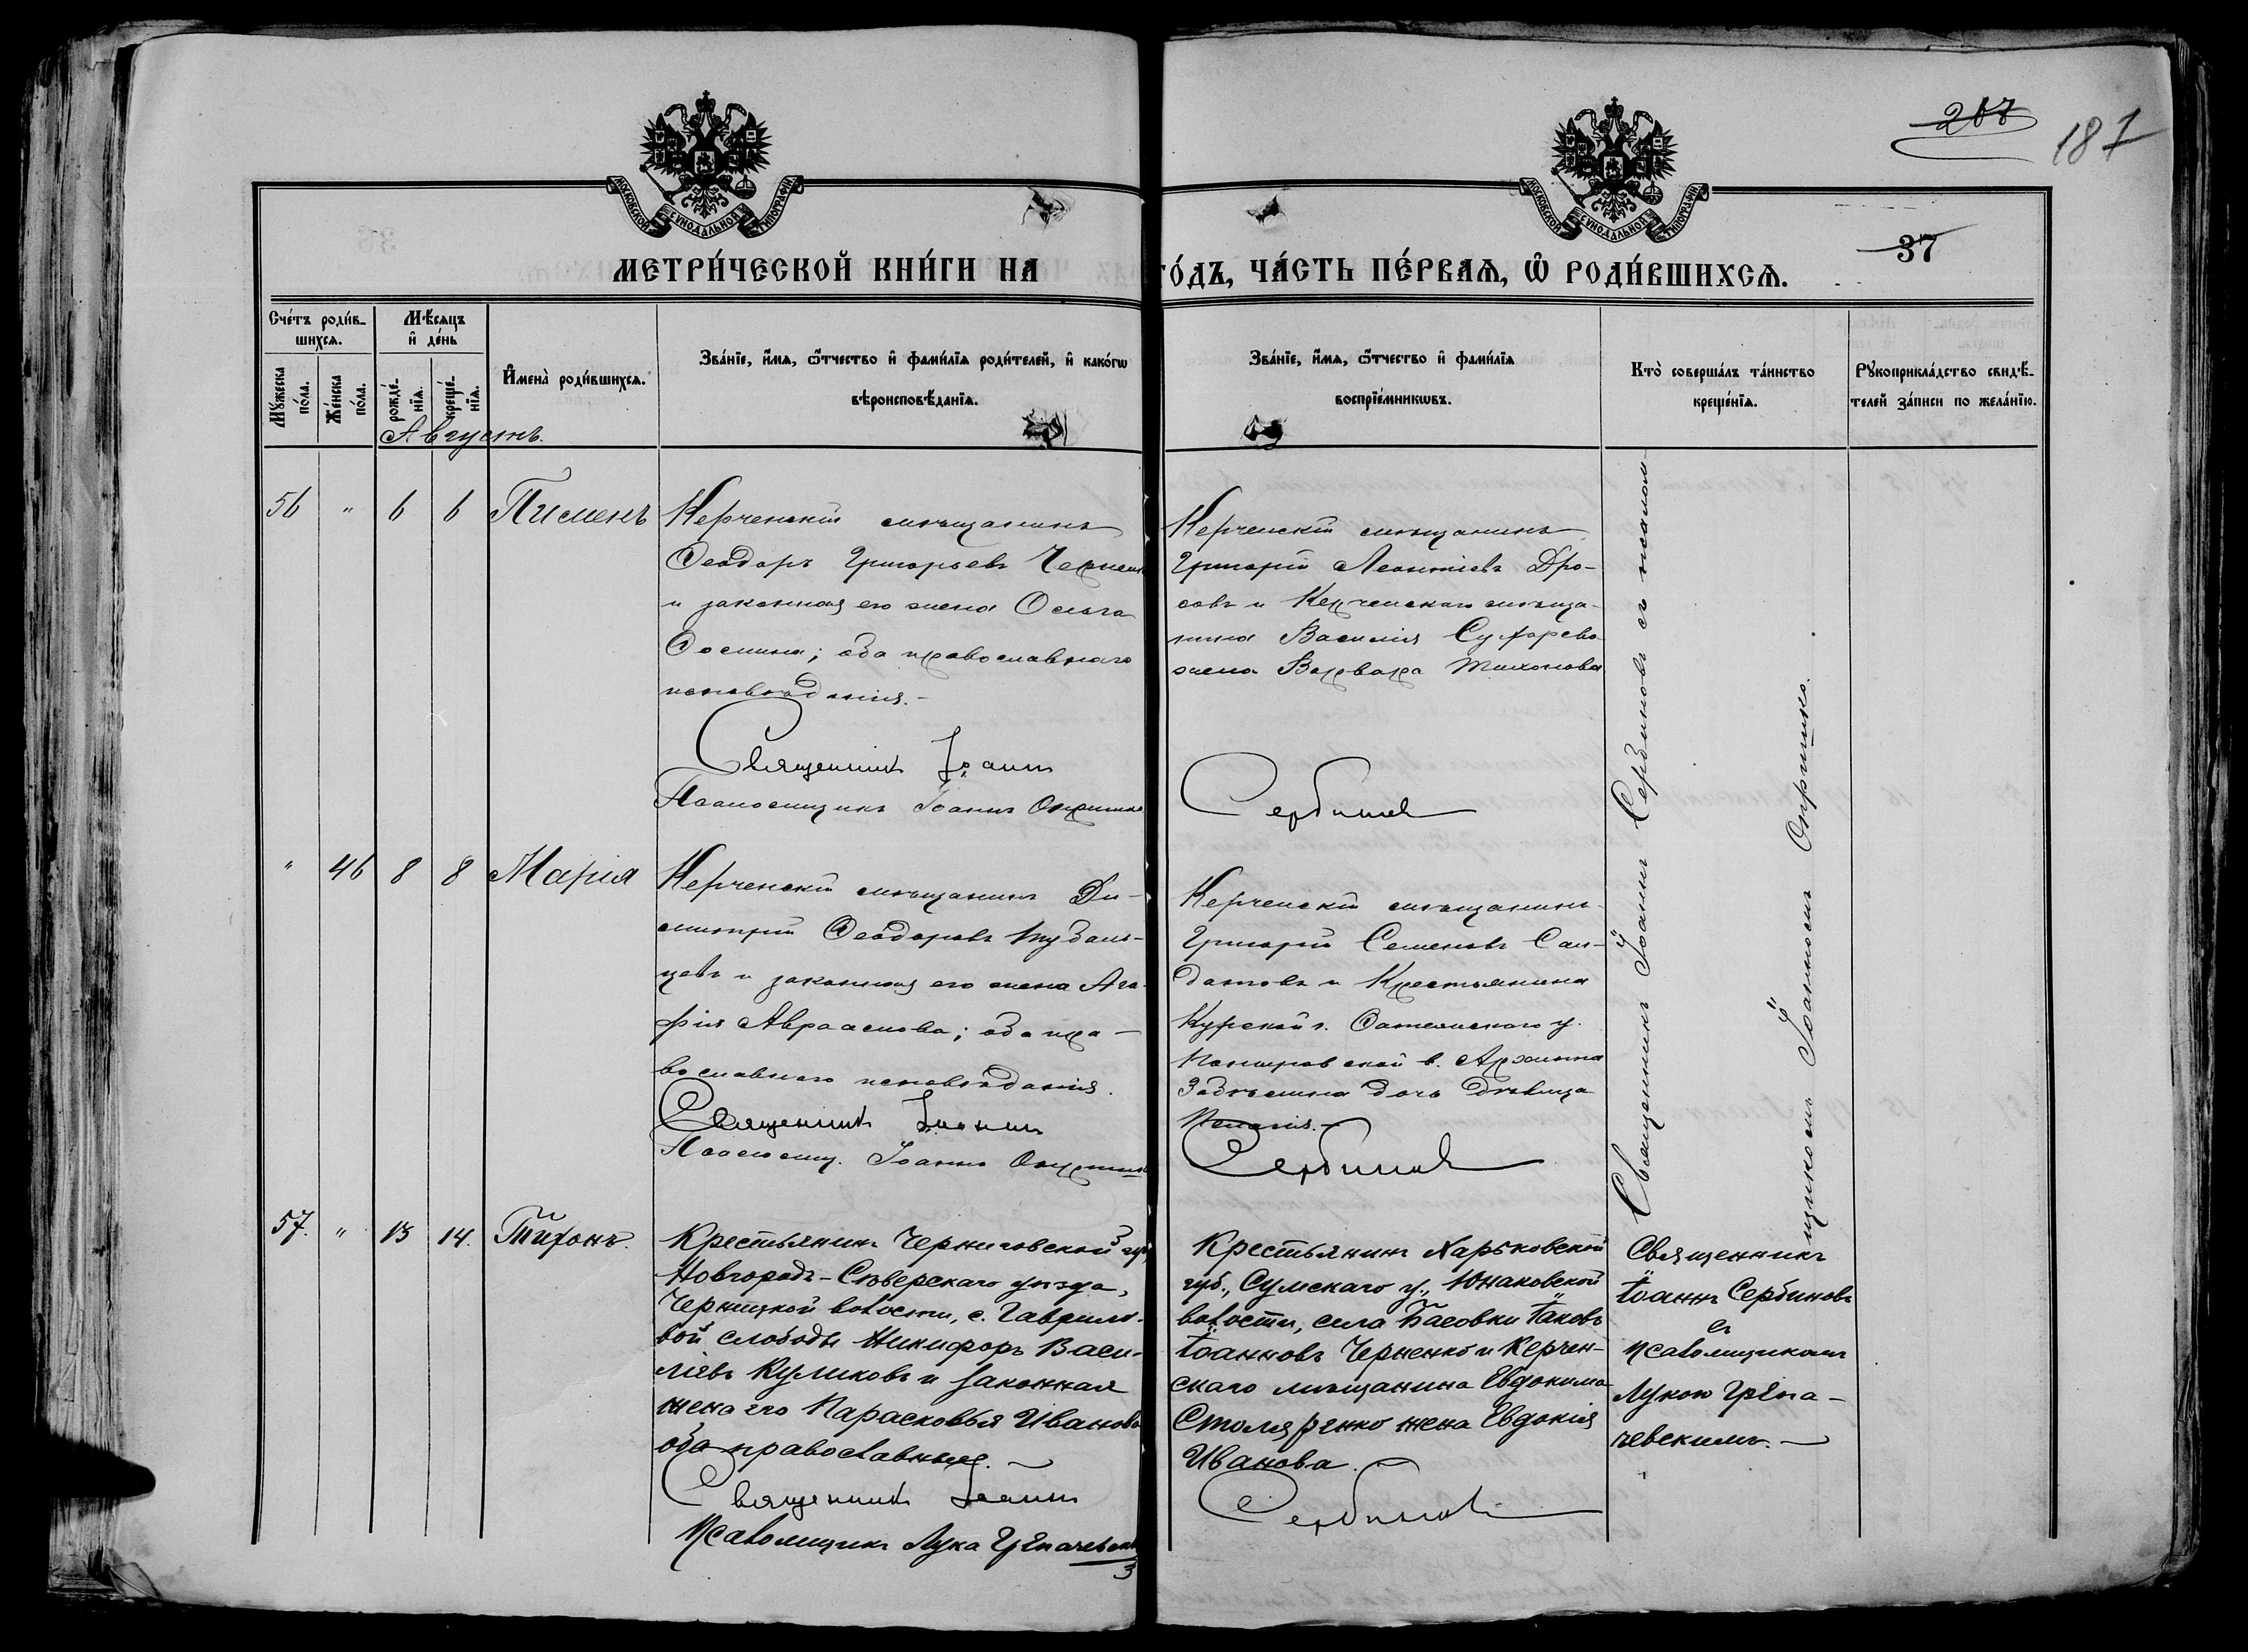 207
187
МОСКОВСКОЙ СѴНОДАЛЬНОЙ ТИПОГРАФІИ
МОСКОВСКОЙ СѴНОДАЛЬНОЙ ТИПОГРАФІИ
37
МЕТРИ́ЧЕСКОЙ КНИ́ГИ НА ГО́ДЪ, ЧА́СТЬ ПЕ́РВАѦ, Ѡ҆ РОДИ́ВШИХСѦ.
Сче́тъ роди́в-
шихсѧ.
Мꙋ́жеска
по́ла.
Же́нска
по́ла.
Мѣ́сѧцъ
и҆ де́нь
рожде́-
нїѧ.
креще́-
нїѧ.
И҆мена̀ роди́вшихсѧ.
Зва́нїе, и҆́мѧ, ѻ҆́тчество и҆ фами́лїѧ роди́телей, и҆ како́гѡ
вѣроисповѣ́данїѧ.
Зва́нїе, и҆́мѧ, ѻ҆́тчество и҆ фами́лїѧ
воспрїе́мникѡвъ.
Кто̀ соверша́лъ та́инство
креще́нїѧ.
Рꙋкоприкла́дство свидѣ́-
телей за́писи по жела́нїю.
Августъ.
56 " 6 6 Пименъ
Керченскій мѣщанинъ
Ѳеодоръ Григорьевъ
и законная его жена Ольга
Ѳомина; оба православнаго
исповѣданія.-
Священникъ Іоаннъ
Псаломщикъ Іоаннъ Опришко
Керченскій мѣщанинъ
Григорій Леонтіевъ Дро-
совъ и Керченскаго мѣща-
нина Василія Сухарева
жена Варвара Тихонова
Сербиновъ
Священникъ Іоаннъ Сербиновъ съ псалом-
щикомъ Іоанномъ Опришко.
" 46 8 8 Марія
Керченскій мѣщанинъ Ди-
митрій Ѳеодоровъ
цевъ и законная его жена Ага-
фія Авраамова; оба пра-
вославнаго исповѣданія.
Священникъ Іоаннъ
Псаломщ. Іоаннъ Опришко
Керченскій мѣщанинъ
Григорій Семеновъ Сал-
датовъ и Крестьянина
Курской г. у.
в. Архипа
дочь дѣвица
Пелагія.-
Сербиновъ
57. " 13 14. Тихонъ.
Крестьянинъ Черниговской губ.,
Новгородъ-Сѣверскаго уѣзда,
волости, с. Гаврило-
вой слободы Никифоръ Васи-
ліевъ Куликовъ и законная
жена его Парасковья Иванова
оба православные.-
Священникъ Іоаннъ
Псаломщикъ Лука
Крестьянинъ Харьковской
губ., Сумскаго у., Юнаковской
волости, села Басовки Іаковъ
Іоанновъ Черненко и Керчен-
скаго мѣщанина Евдокима
Столяренко жена Евдокія
Иванова.-
Сербиновъ
Священникъ
Іоаннъ Сербиновъ
съ
псаломщикомъ
Лукою
чевскимъ.-